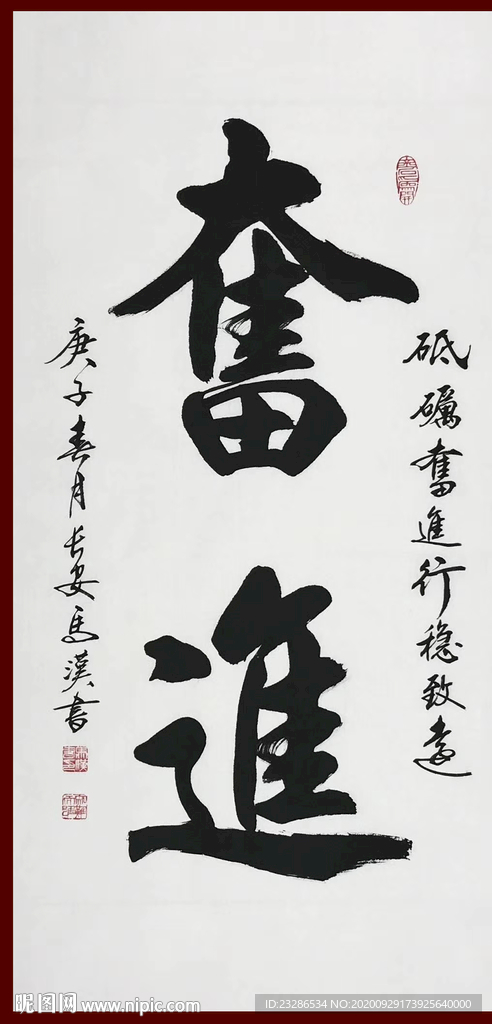 砥礪奮進行穩致遠
奮進
庚子春月长安馬漢書
昵图网 www.nipic.com
ID:23286534 NO:20200929173925640000